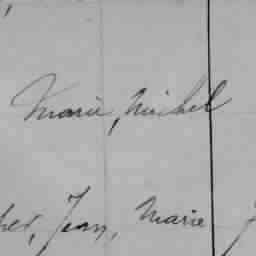 Marie, Michel
Jean, Marie